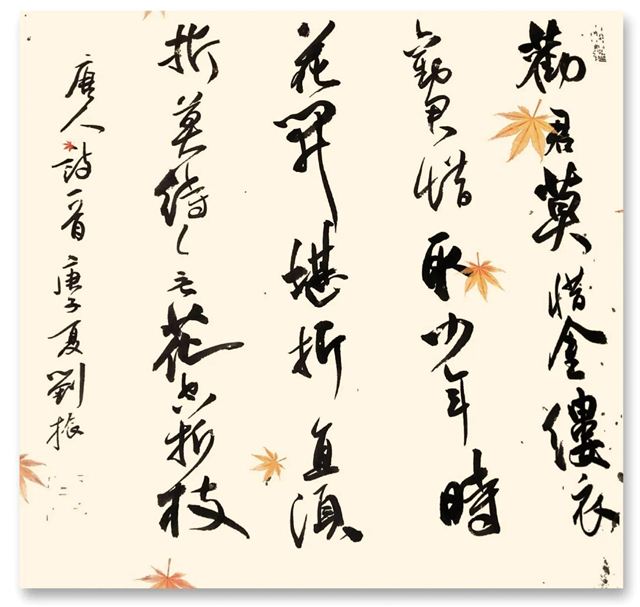 勸君莫惜金縷衣
勸君惜取少年時
花開堪折直須
折莫待无花空折枝
唐人詩一首庚子夏劉振